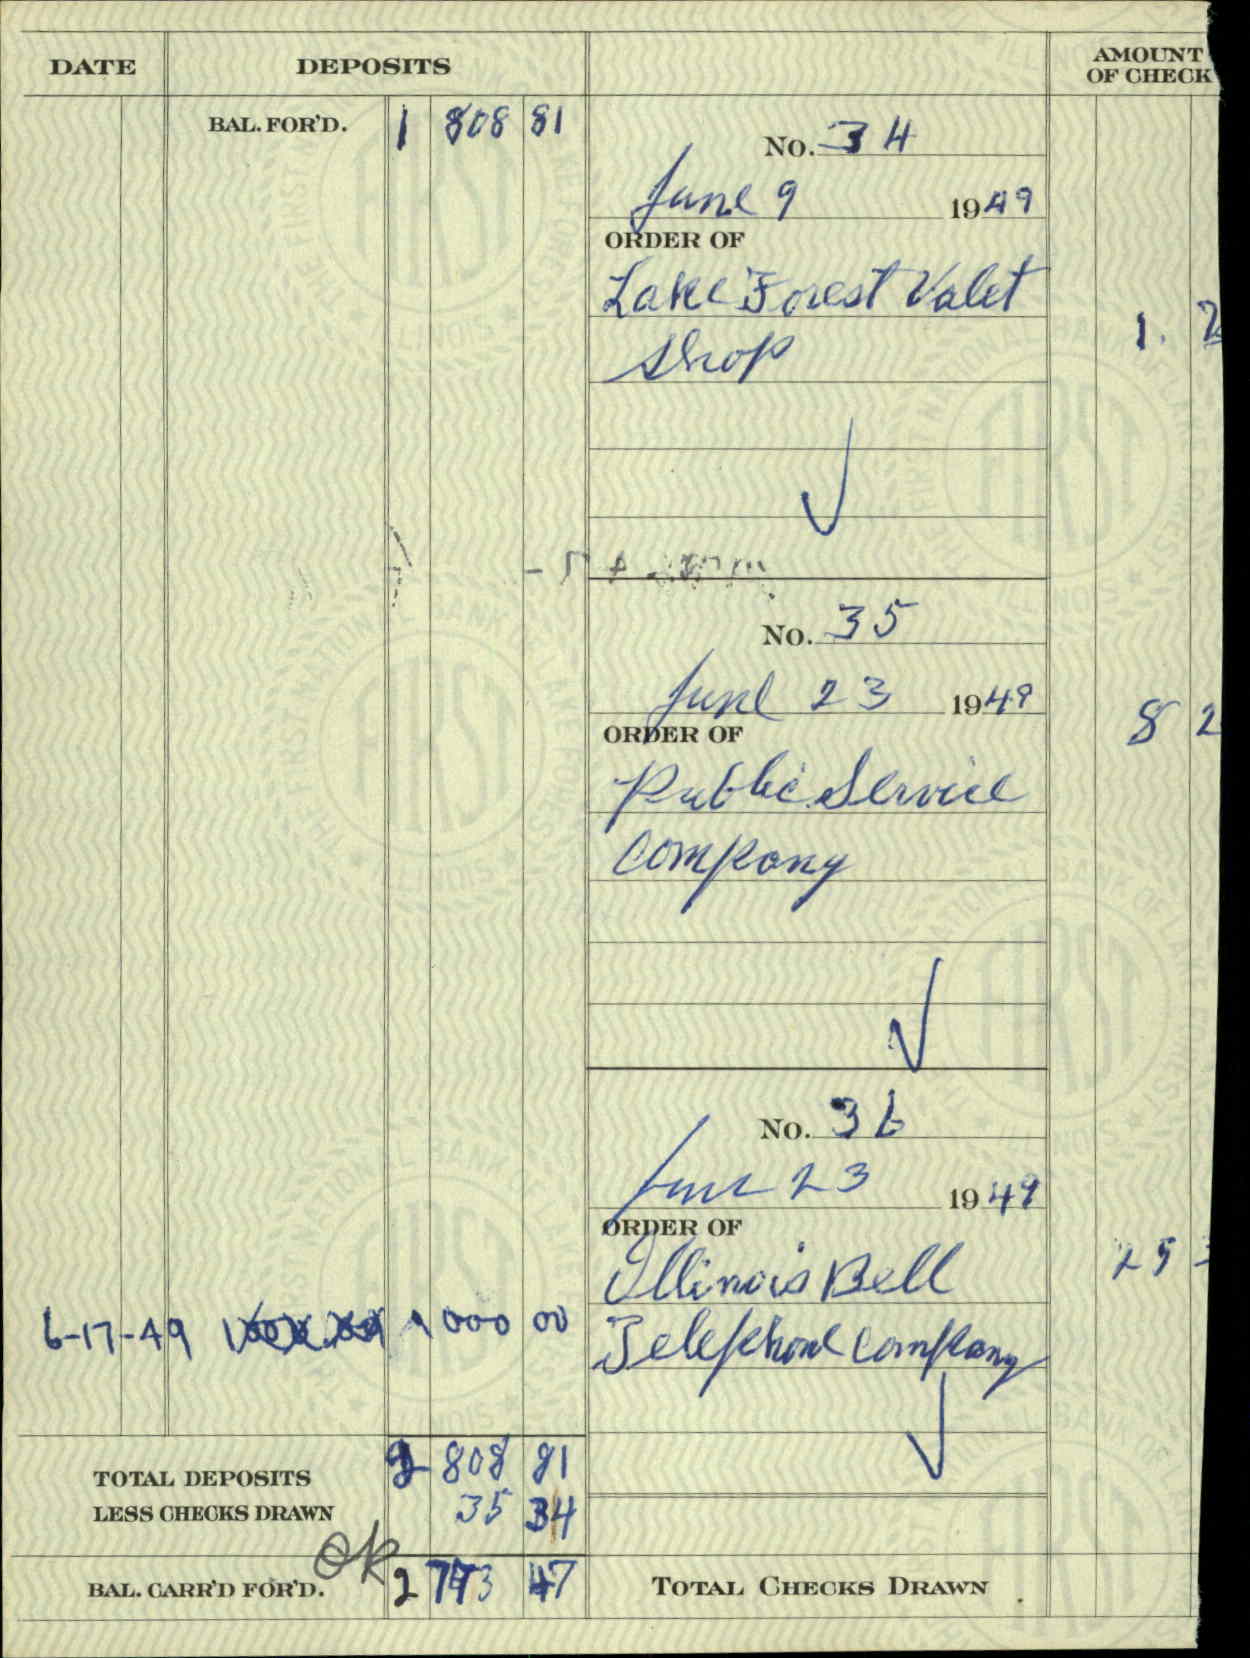 DATE DEPOSITS AMOUNT OF CHECK
BAL. FOR'D. 1 808 81
No. 34
June 9 1949
ORDER OF
Lake Forest Valet
Shop
1.
No. 35
June 23 1949
ORDER OF
Public Service
Company
8 2
No. 36
June 23 1949
ORDER OF
Illinois Bell
Telephone Company
25
6-17-49 1 000 00
TOTAL DEPOSITS 2 808 81
LESS CHECKS DRAWN 35 34
ok
BAL. CARR'D FOR'D. 2 773 47
TOTAL CHECKS DRAWN